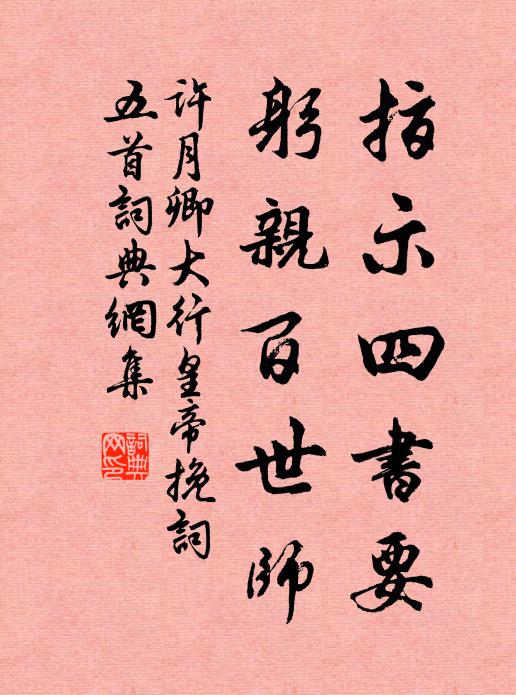 指示四書要
躬親百世師
許月卿大行皇帝挽詞
五首詞典網集
詞典網印